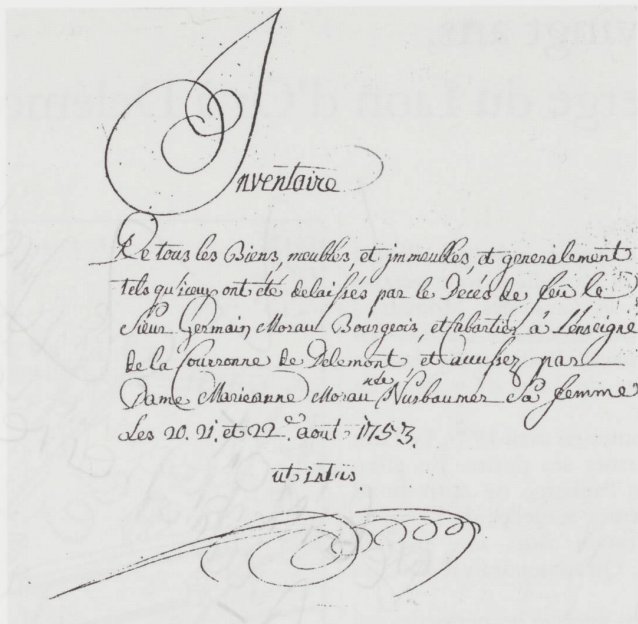 Inventaire
De tous les Biens, meubles, et jmmeubles, et generalement
tels qu'iceux ont été delaissés par le Decés de feu le
Sieur Germain Morau Bourgeois, et Cabartier à Lenseigne
de la Courronne de Delemont, et par
Dame Marieanne Morau née Nusbaumer Sa femme
Les 20. 21. et 22.e aout 1753.
ut intùs